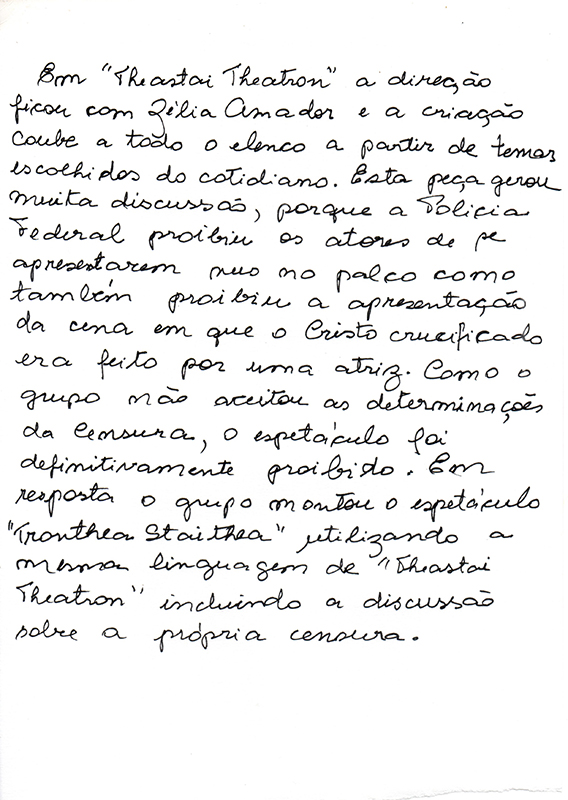 Em "Theastai Theatron" a direção
ficou com Zélia Amador e a criação
coube a todo o elenco a partir de temas
escolhidos do cotidiano. Esta peça gerou
muita discussão, porque a Polícia
Federal proibiu os atores de se
apresentarem nus no palco como
também proibiu a apresentação
da cena em que o Cristo crucificado
era feito por uma atriz. Como o
grupo não aceitou as determinações
da Censura, o espetáculo foi
definitivamente proibido. Em
resposta o grupo montou o espetáculo
"Tronthea Staithea" utilizando a
mesma linguagem de "Theastai
Theatron" incluindo a discussão
sobre a própria censura.